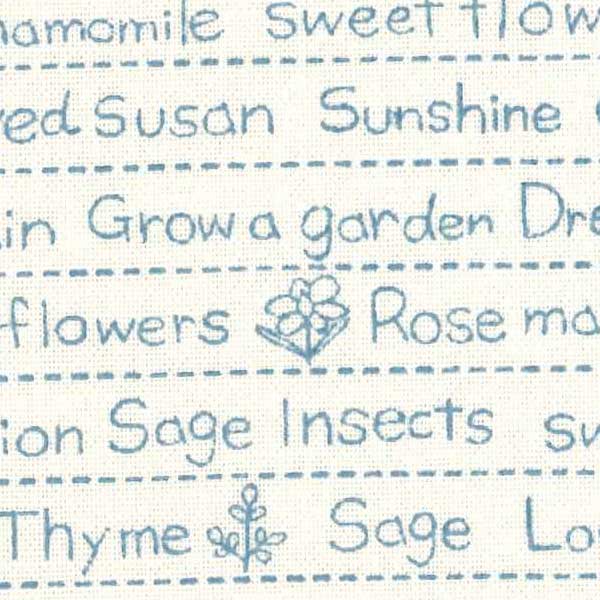 hamomile sweet flow
yed Susan Sunshine
in Grow a garden Dre
flowers Rose ma
ion Sage Insects sw
Thyme Sage Lo